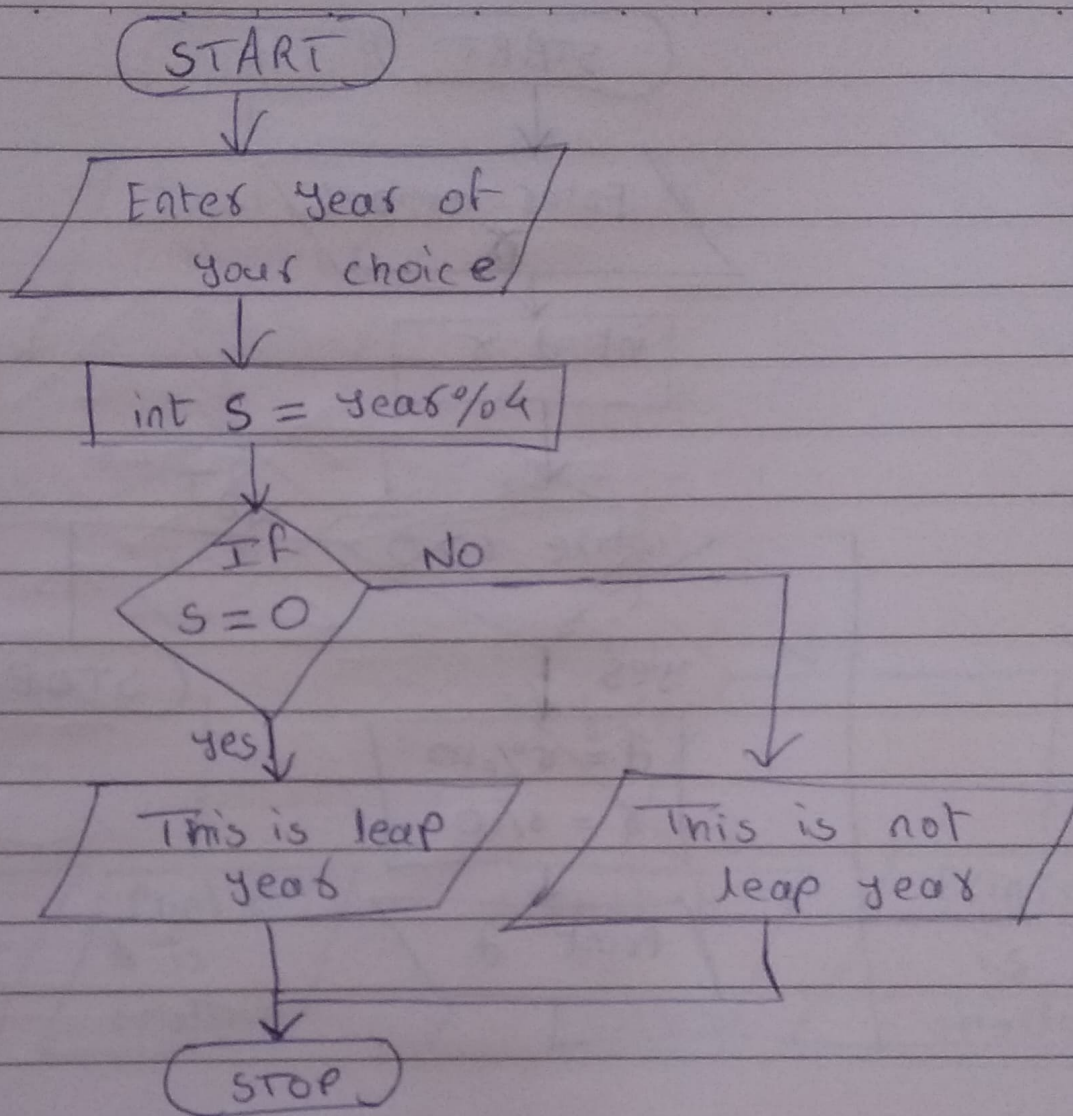 START
Enter year of
your choice
int S = year%4
If
S = 0
No
yes
This is leap
year
This is not
leap year
STOP